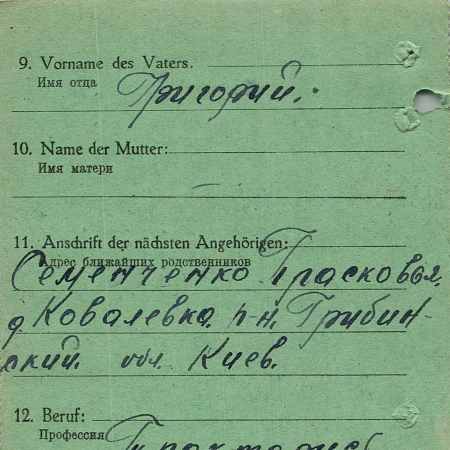 9. Vorname des Vaters.
Имя отца
Григорий.
10. Name der Mutter:
Имя матери
—
11. Anschrift der nächsten Angehörigen:
Адрес ближайших родственников
Семенченко Прасковья.
д. Ковалевка. р-н. Грибин-
ский. обл. Киев.
12. Beruf:
Профессия